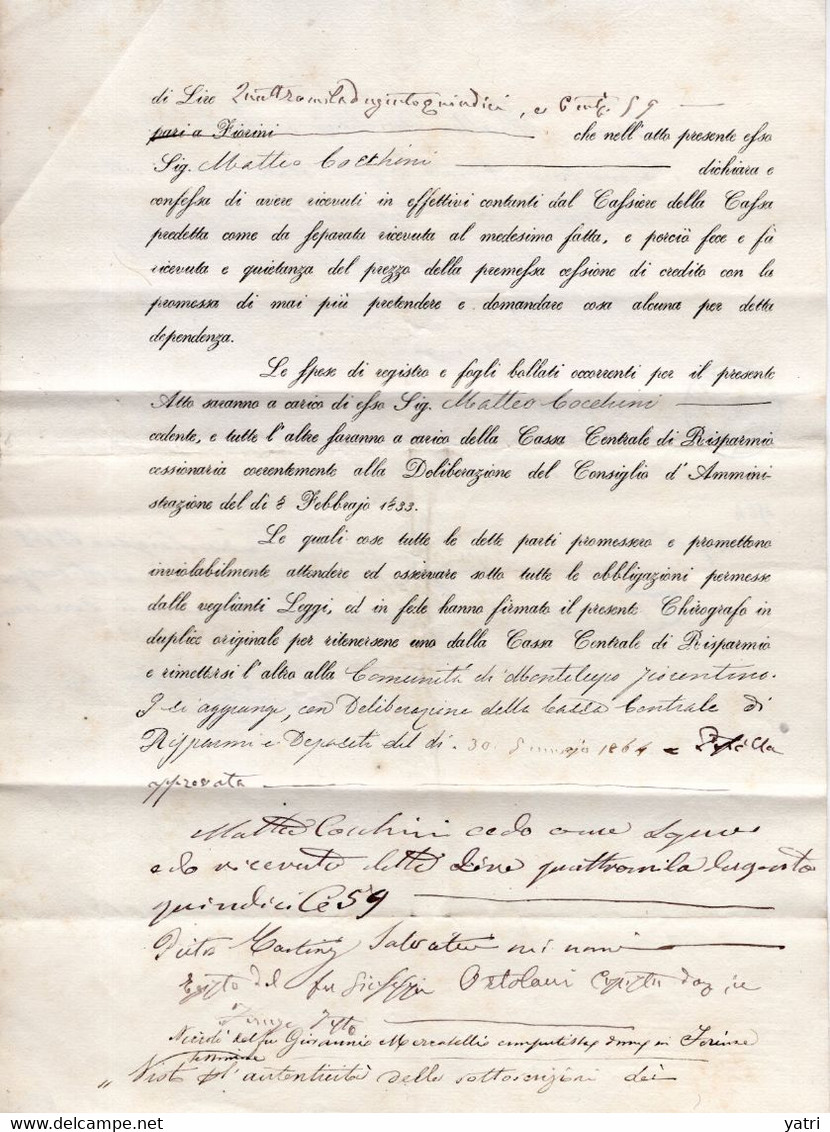 di Lire Quattromiladugentoquindici, e Cent. 59
pari a Fiorini che nell'atto presente esso
Sig. Matteo Cocchini dichiara e
confessa di avere ricevuti in effettivi contanti dal Cassiere della Cassa
predetta come da separata ricevuta al medesimo fatta, e perciò fece e fà
ricevuta e quietanza del prezzo della premessa cessione di credito con la
promessa di mai più pretendere e domandare cosa alcuna per detta
dependenza.
Le spese di registro e fogli bollati occorrenti per il presente
Atto saranno a carico di esso Sig. Matteo Cocchini
cedente, e tutte l'altre saranno a carico della Cassa Centrale di Risparmio
cessionaria coerentemente alla Deliberazione del Consiglio d'Ammini-
strazione del dì 8 Febbrajo 1833.
Le quali cose tutte le dette parti promessero e promettono
inviolabilmente attendere ed osservare sotto tutte le obbligazioni permesse
dalle veglianti Leggi, ed in fede hanno firmato il presente Chirografo in
duplice originale per ritenersene uno dalla Cassa Centrale di Risparmio
e rimettersi l'altro alla Comunità di Montelupo Fiorentino.
si aggiunge, con Deliberazione della Cassa Centrale di
Risparmi e Depositi del dì 30 Gennajo 1864
approvata
Matteo Cocchini cedo come sopra
e ho ricevuto dette Lire quattromila dugento
quindici C 59
Pietro Martini
del fu Giuseppe Ortolani
Firenze
Niccolò del fu Giovanni Mercatelli computista dom. in Firenze
testimone
" Visto p l'autenticità delle sottoscrizioni dei
yatri